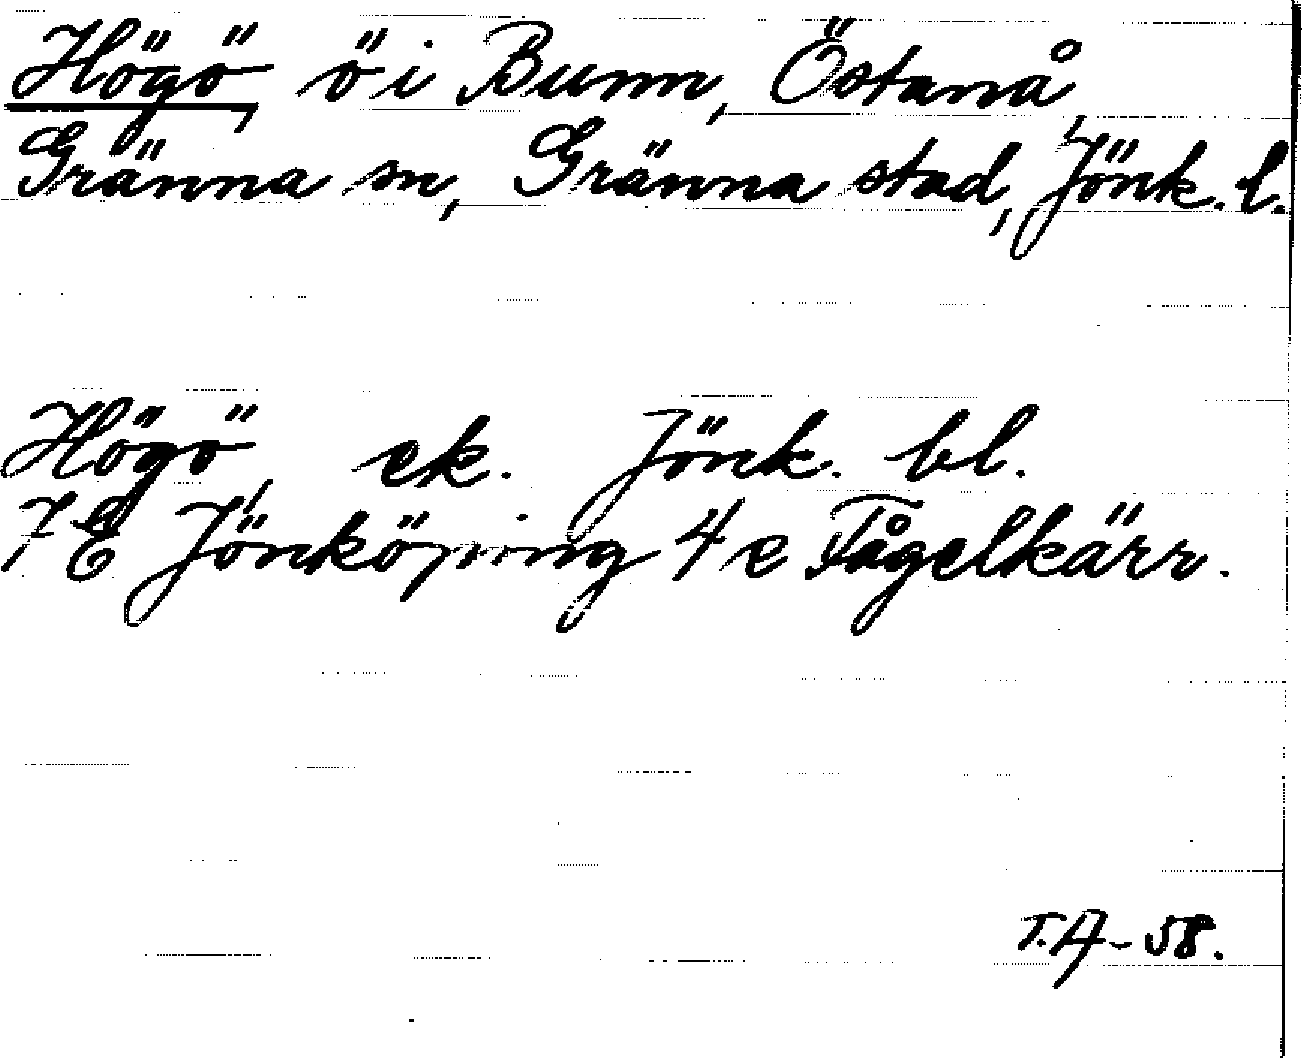 Högö, ö i Bunn, Östanå,
Gränna sn, Gränna stad, Jönk. l.
Högö, ek. Jönk. bl.
7 E Jönköping 4 e Fågelkärr.
T.A-58.